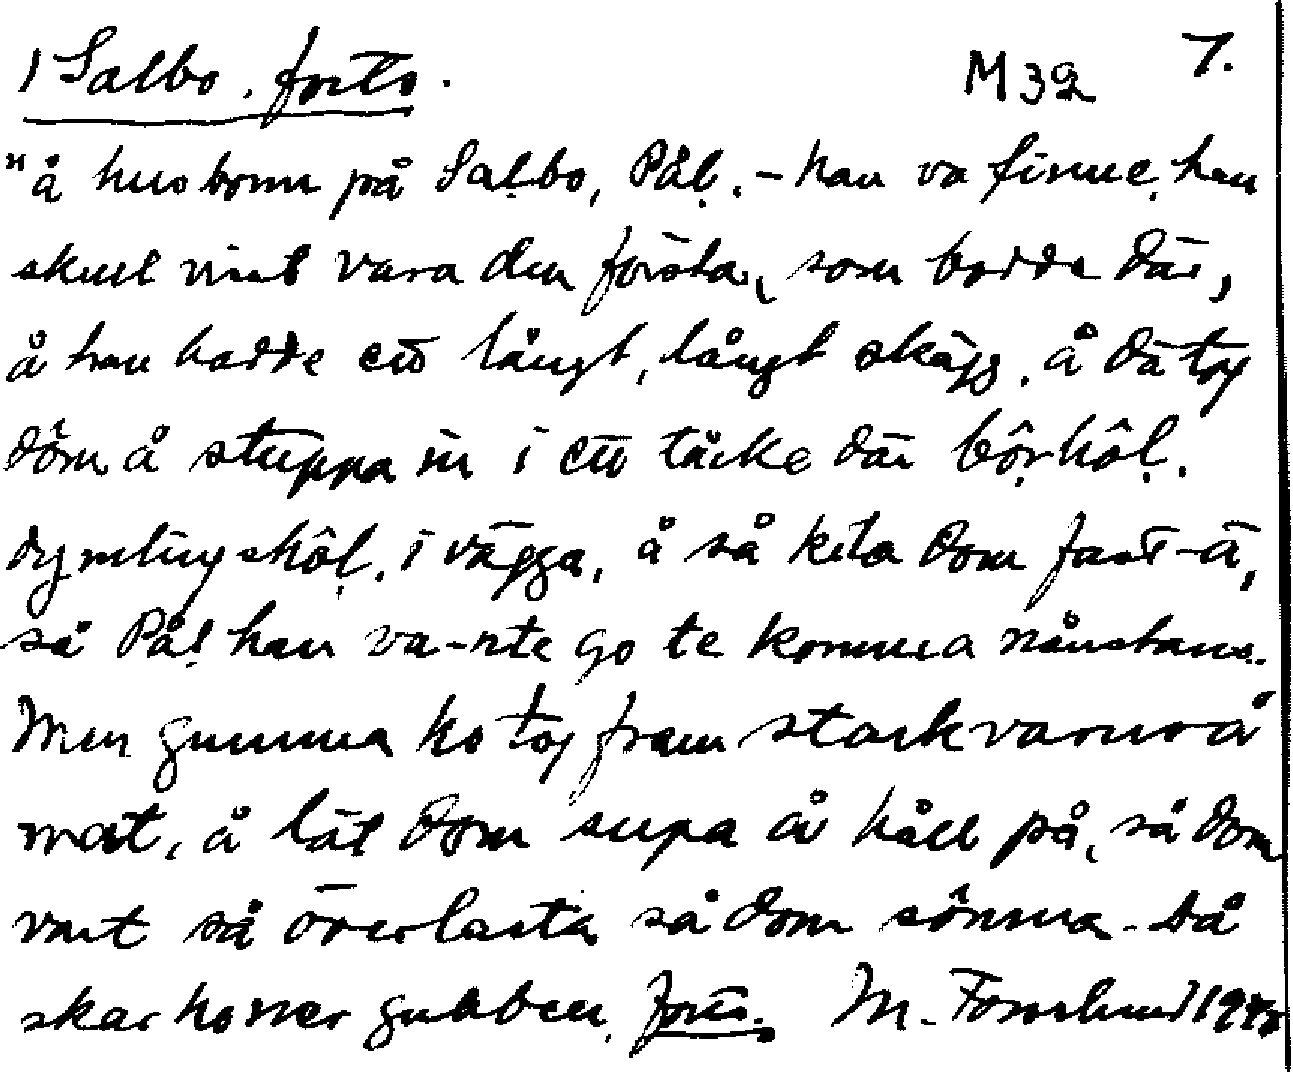 I Salbo. forts. M 32 7.
"å husbonn på Saḷbo, Påḷ. - han va finne, han
skull visst vara den första, som bodde där,
å han hadde ett långt, långt skägg, å dä tog
döm å stuppa in i ett täcke där bôṛhôḷ.
dymlingshôḷ. i vägga, å så kila dom fast-ä,
så Påḷ han va-nte go te komma nånstans.
Men gumma ho tog fram starkvarurå
mat, å lät dom supa å håll på, så dom
vart så överlasta så dom sômna. Då
skar ho ner gubben. forts. M. Forslund 194